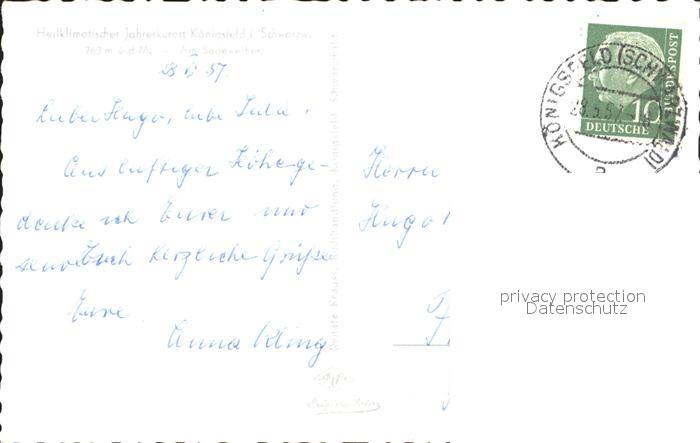 Heilklimatischer Jahreskurort Königsfeld i. Schwarzw.
763 m ü. d. M. - Am Sägeweiher
28 5 57.
Lieber Hugo, liebe Lula,
Aus luftiger Höhe ge-
denke ich Eurer und
sende Euch herzliche Grüße
Eure
Anna Kling
Renate Krauss, Buchhandlung, Königsfeld Schwarzwald
Herrn
Hugo
KÖNIGSFELD (SCHWARZWALD)
28.5.57
10
DEUTSCHE BUNDESPOST
privacy protection
Datenschutz